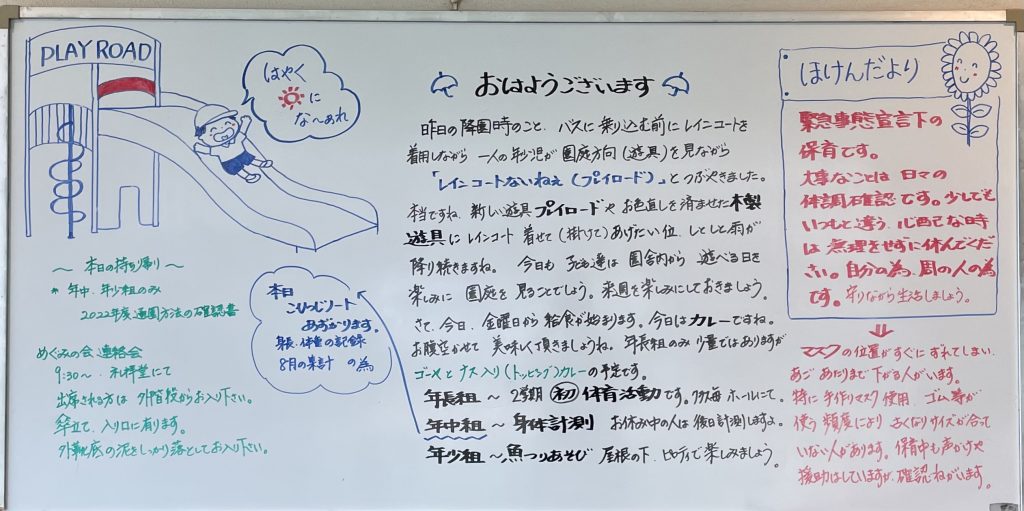 PLAY ROAD
はやく
に
な〜あれ
〜 本日の持ち帰り 〜
* 年中、年少組のみ
2022年度通園方法の確認書
めぐみの会連絡会
9:30〜 礼拝堂にて
出席される方は 外階段からお入り下さい。
傘立て、入り口に有ります。
外靴底の泥をしっかり落としてお入り下さい。
本日
こひつじノート
あずかります。
身長・体重の記録
8月の集計 の為
おはようございます
昨日の降園時のこと、バスに乗り込む前にレインコートを
着用しながら 一人の年少児が園庭方向(遊具)を見ながら
「レインコートないねぇ(プレイロード)」とつぶやきました。
本当ですね、新しい遊具プレイロードやお色直しを済ませた木製
遊具にレインコート 着せて(掛けて)あげたい位、しとしと雨が
降り続きますね。 今日も 子ども達は 園舎内から 遊べる日を
楽しみに 園庭を 見ることでしょう。来週を楽しみにしておきましょう。
さて、今日、金曜日から 給食が始まります。今日はカレーですね。
お腹空かせて 美味しく頂きましょうね。年長組のみ 少量ではありますが
ゴーヤとナス入り(トッピング)カレーの予定です。
年長組 〜 2学期 初 体育活動です。クラス毎 ホールにて。
年中組 〜 身体計測 お休み中の人は後日計測しますよ。
年少組 〜 魚つりあそび 屋根の下、ピロティで楽しみましょう。
ほけんだより
緊急事態宣言下の
保育です。
大事なことは 日々の
体調確認です。少しでも
いつもと違う、心配な時
は 無理をせずに休んでくだ
さい。自分の為、周の人の為
です。守りながら生活しましょう。
マスクの位置がすぐに ずれてしまい、
あご あたりまで 下がる人がいます。
特に 手作りマスク使用、ゴム等が
使う 頻度により 古くなりサイズが合って
いない人があります。保育中も声かけや
援助はしていますが、確認ねがいます。